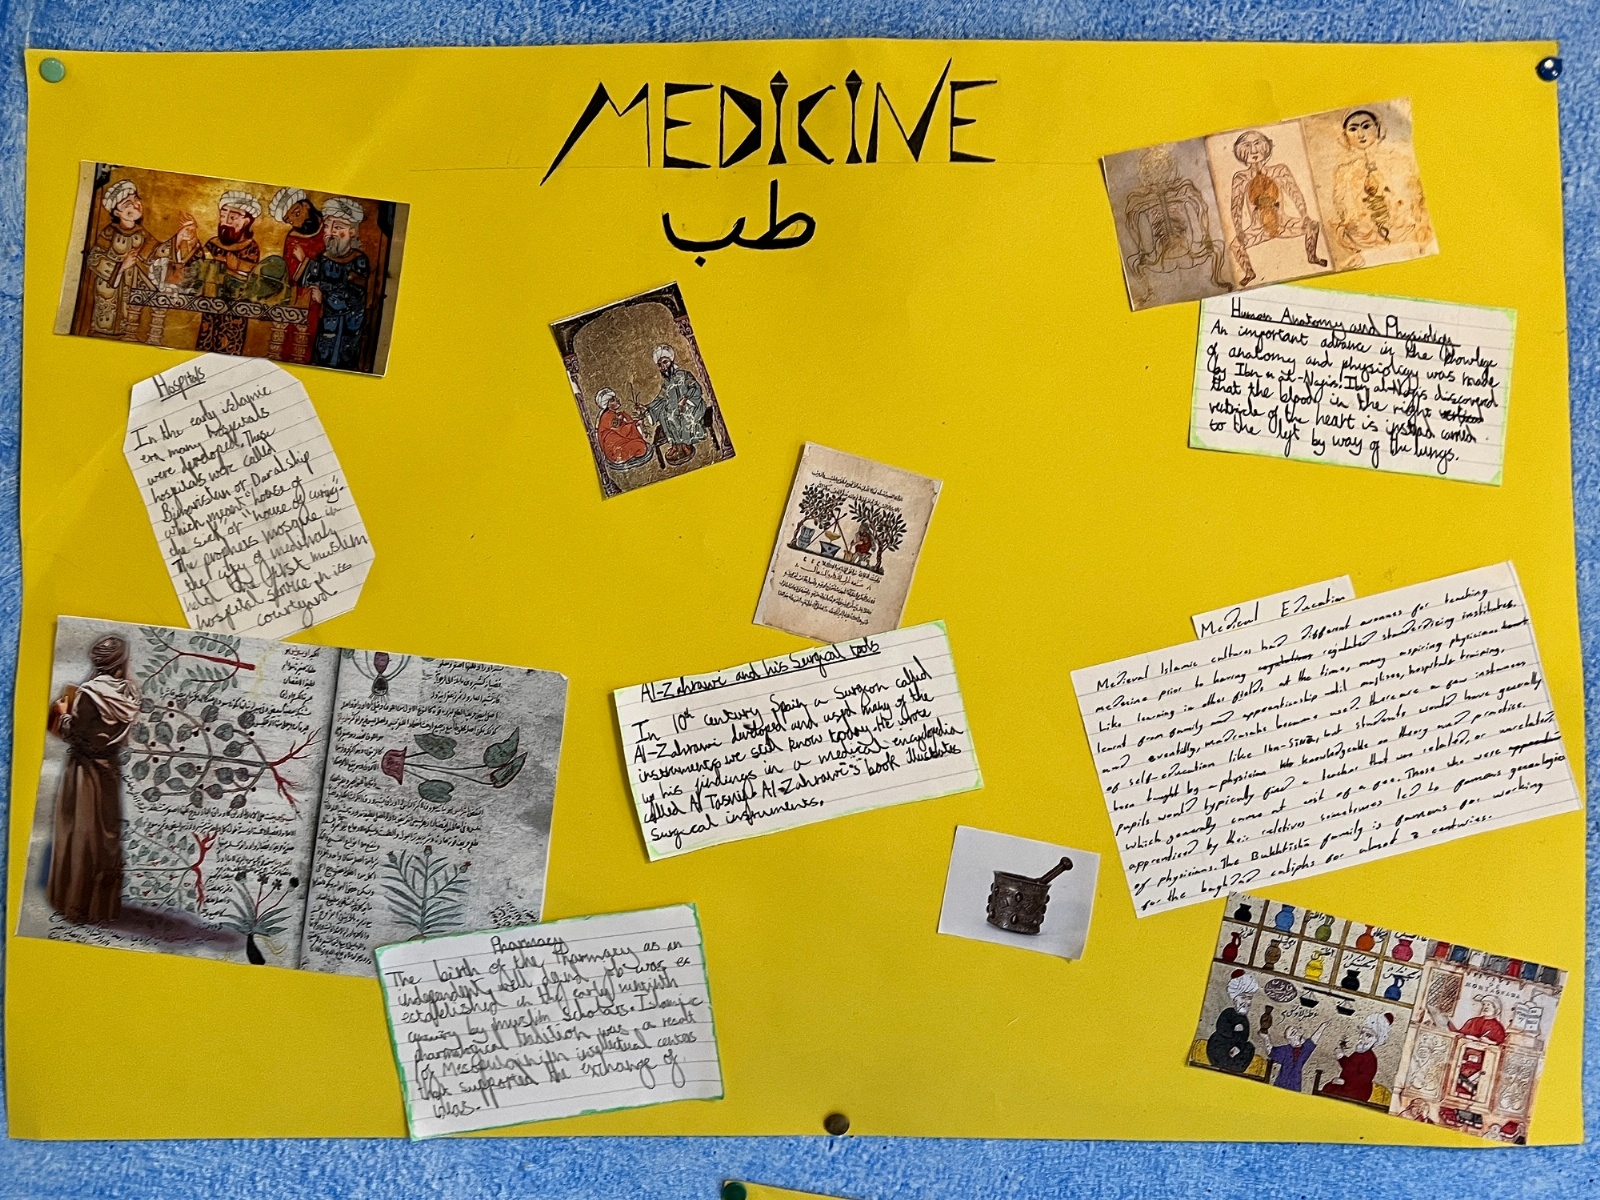 MEDICINE
طب
Hospitals
In the early islamic
era many hospitals
were developed. These
hospitals were called
Bimaristan or Daralship
which meant "house of
the sick" or "house of curing".
The prophets mosque in
the city of medinah
held the first muslim
hospital service in its
courtyard
Human Anatomy and Physiology
An important advance in the knowlege
of anatomy and physiology was made
by Ibn al-Nafis. Ibn al-Nafis discovered
that the blood in the right
ventricle of the heart is instead carried
to the left by way of the lungs.
Al-Zahrawi and his Surgical tools
In 10th century Spain a Surgeon called
Al-Zahrawi devloped and used many of the
instruments we still know today. He wrote
up his findings in a medical encyclopedia
called Al Tasrif. Al-Zahrawi's book illustrates
Surgical instruments.
Medieval Education
Medieval Islamic cultures had different avenues for teaching
medicine prior to having regulated standardising institutes.
Like learning in other fields at the time, many aspiring physicians
learnt from family and apprenticeship until majlises, hospitals training,
and eventually, madrasahs became used. There are a few instances
of self-education like Ibn-Sina, but students would have generally
been taught by a physician knowledgeable on theory and practise.
pupils would typically find a teacher that was related, or unrelated,
which generally came at cost of a fee. Those who were
apprenticed by their relatives sometimes led to famous genealogies
of physicians. The Bukhtishu family is famous for working
for the baghdad caliphs for almost 3 centuries.
Pharmacy
The birth of the Pharmacy as an
independent, well defined job was
established in the early nineteth
century by muslim Scholars. Islamic
pharmological tradition was a result
of Mesopotamian intellectual centres
that supported the exchange of
ideas.